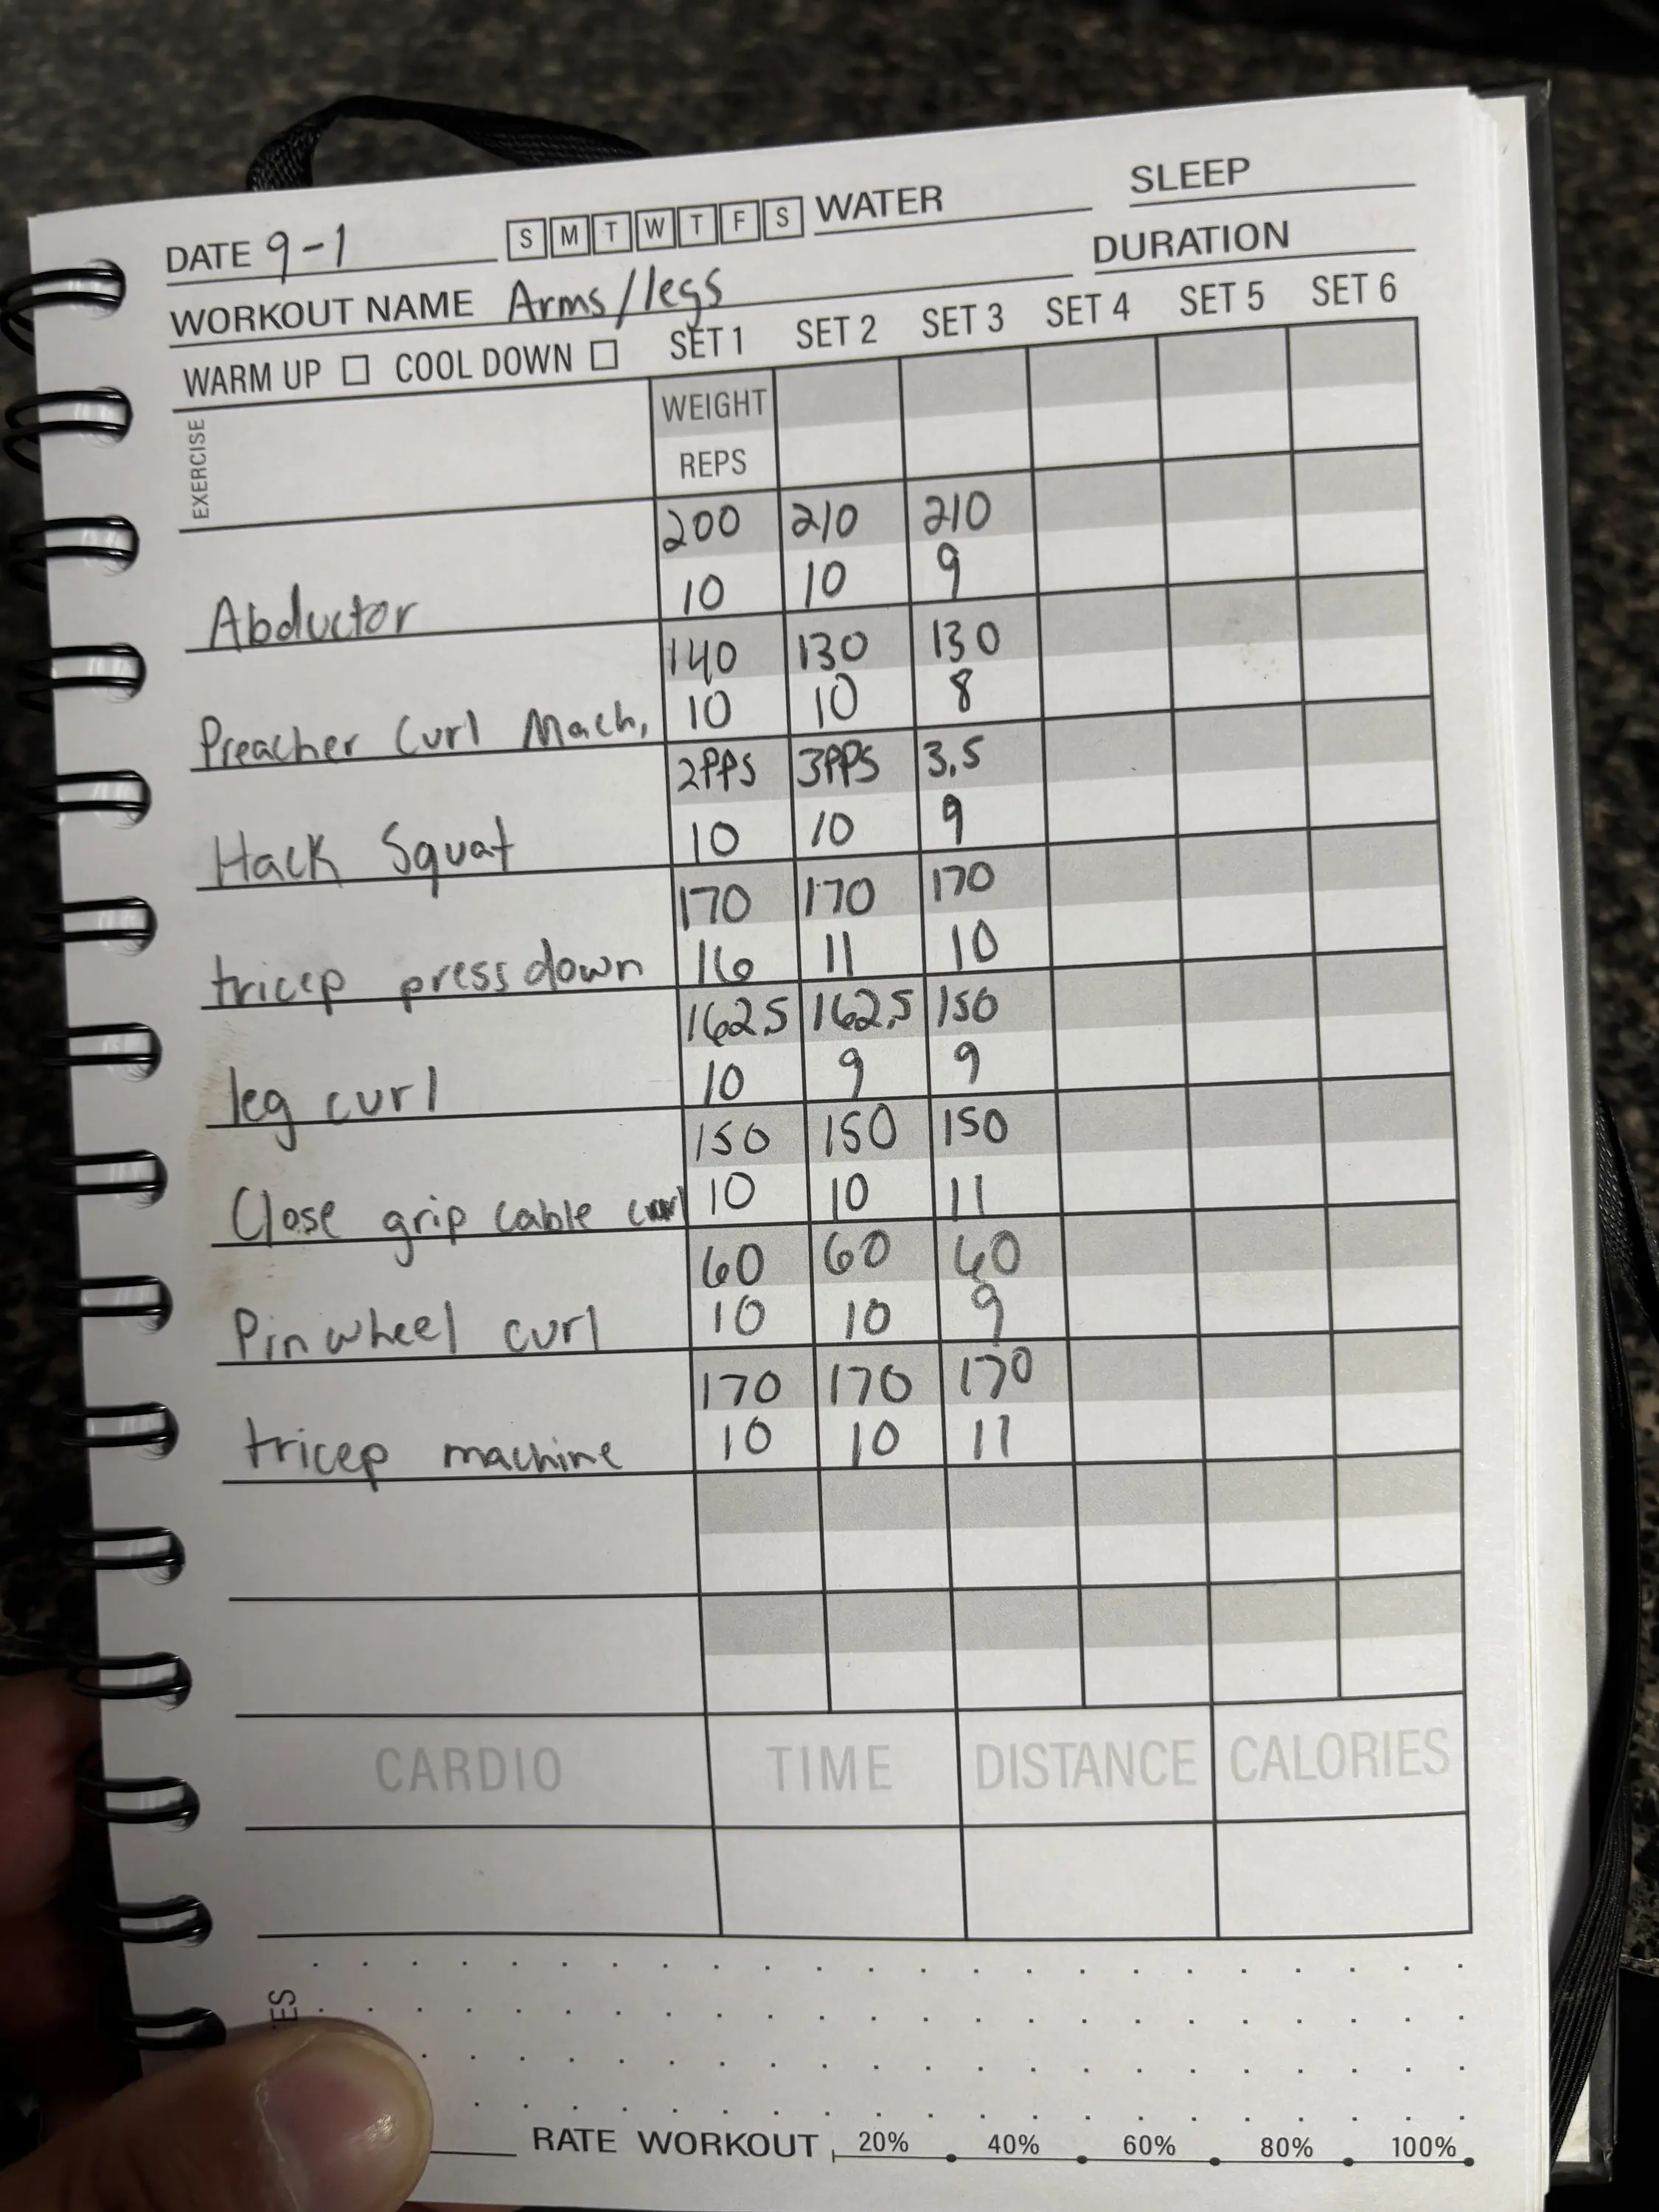 SLEEP
DATE 9-1 S M T W T F S WATER
DURATION
WORKOUT NAME Arms/legs
WARM UP COOL DOWN SET 1 SET 2 SET 3 SET 4 SET 5 SET 6
EXERCISE WEIGHT
REPS
200 210 210
Abductor 10 10 9
140 130 130
Preacher Curl Mach. 10 10 8
2PPS 3PPS 3.5
Hack Squat 10 10 9
170 170 170
tricep pressdown 16 11 10
162.5 162.5 150
leg curl 10 9 9
150 150 150
Close grip cable curl 10 10 11
60 60 60
Pinwheel curl 10 10 9
170 170 170
tricep machine 10 10 11
CARDIO TIME DISTANCE CALORIES
RATE WORKOUT 20% 40% 60% 80% 100%